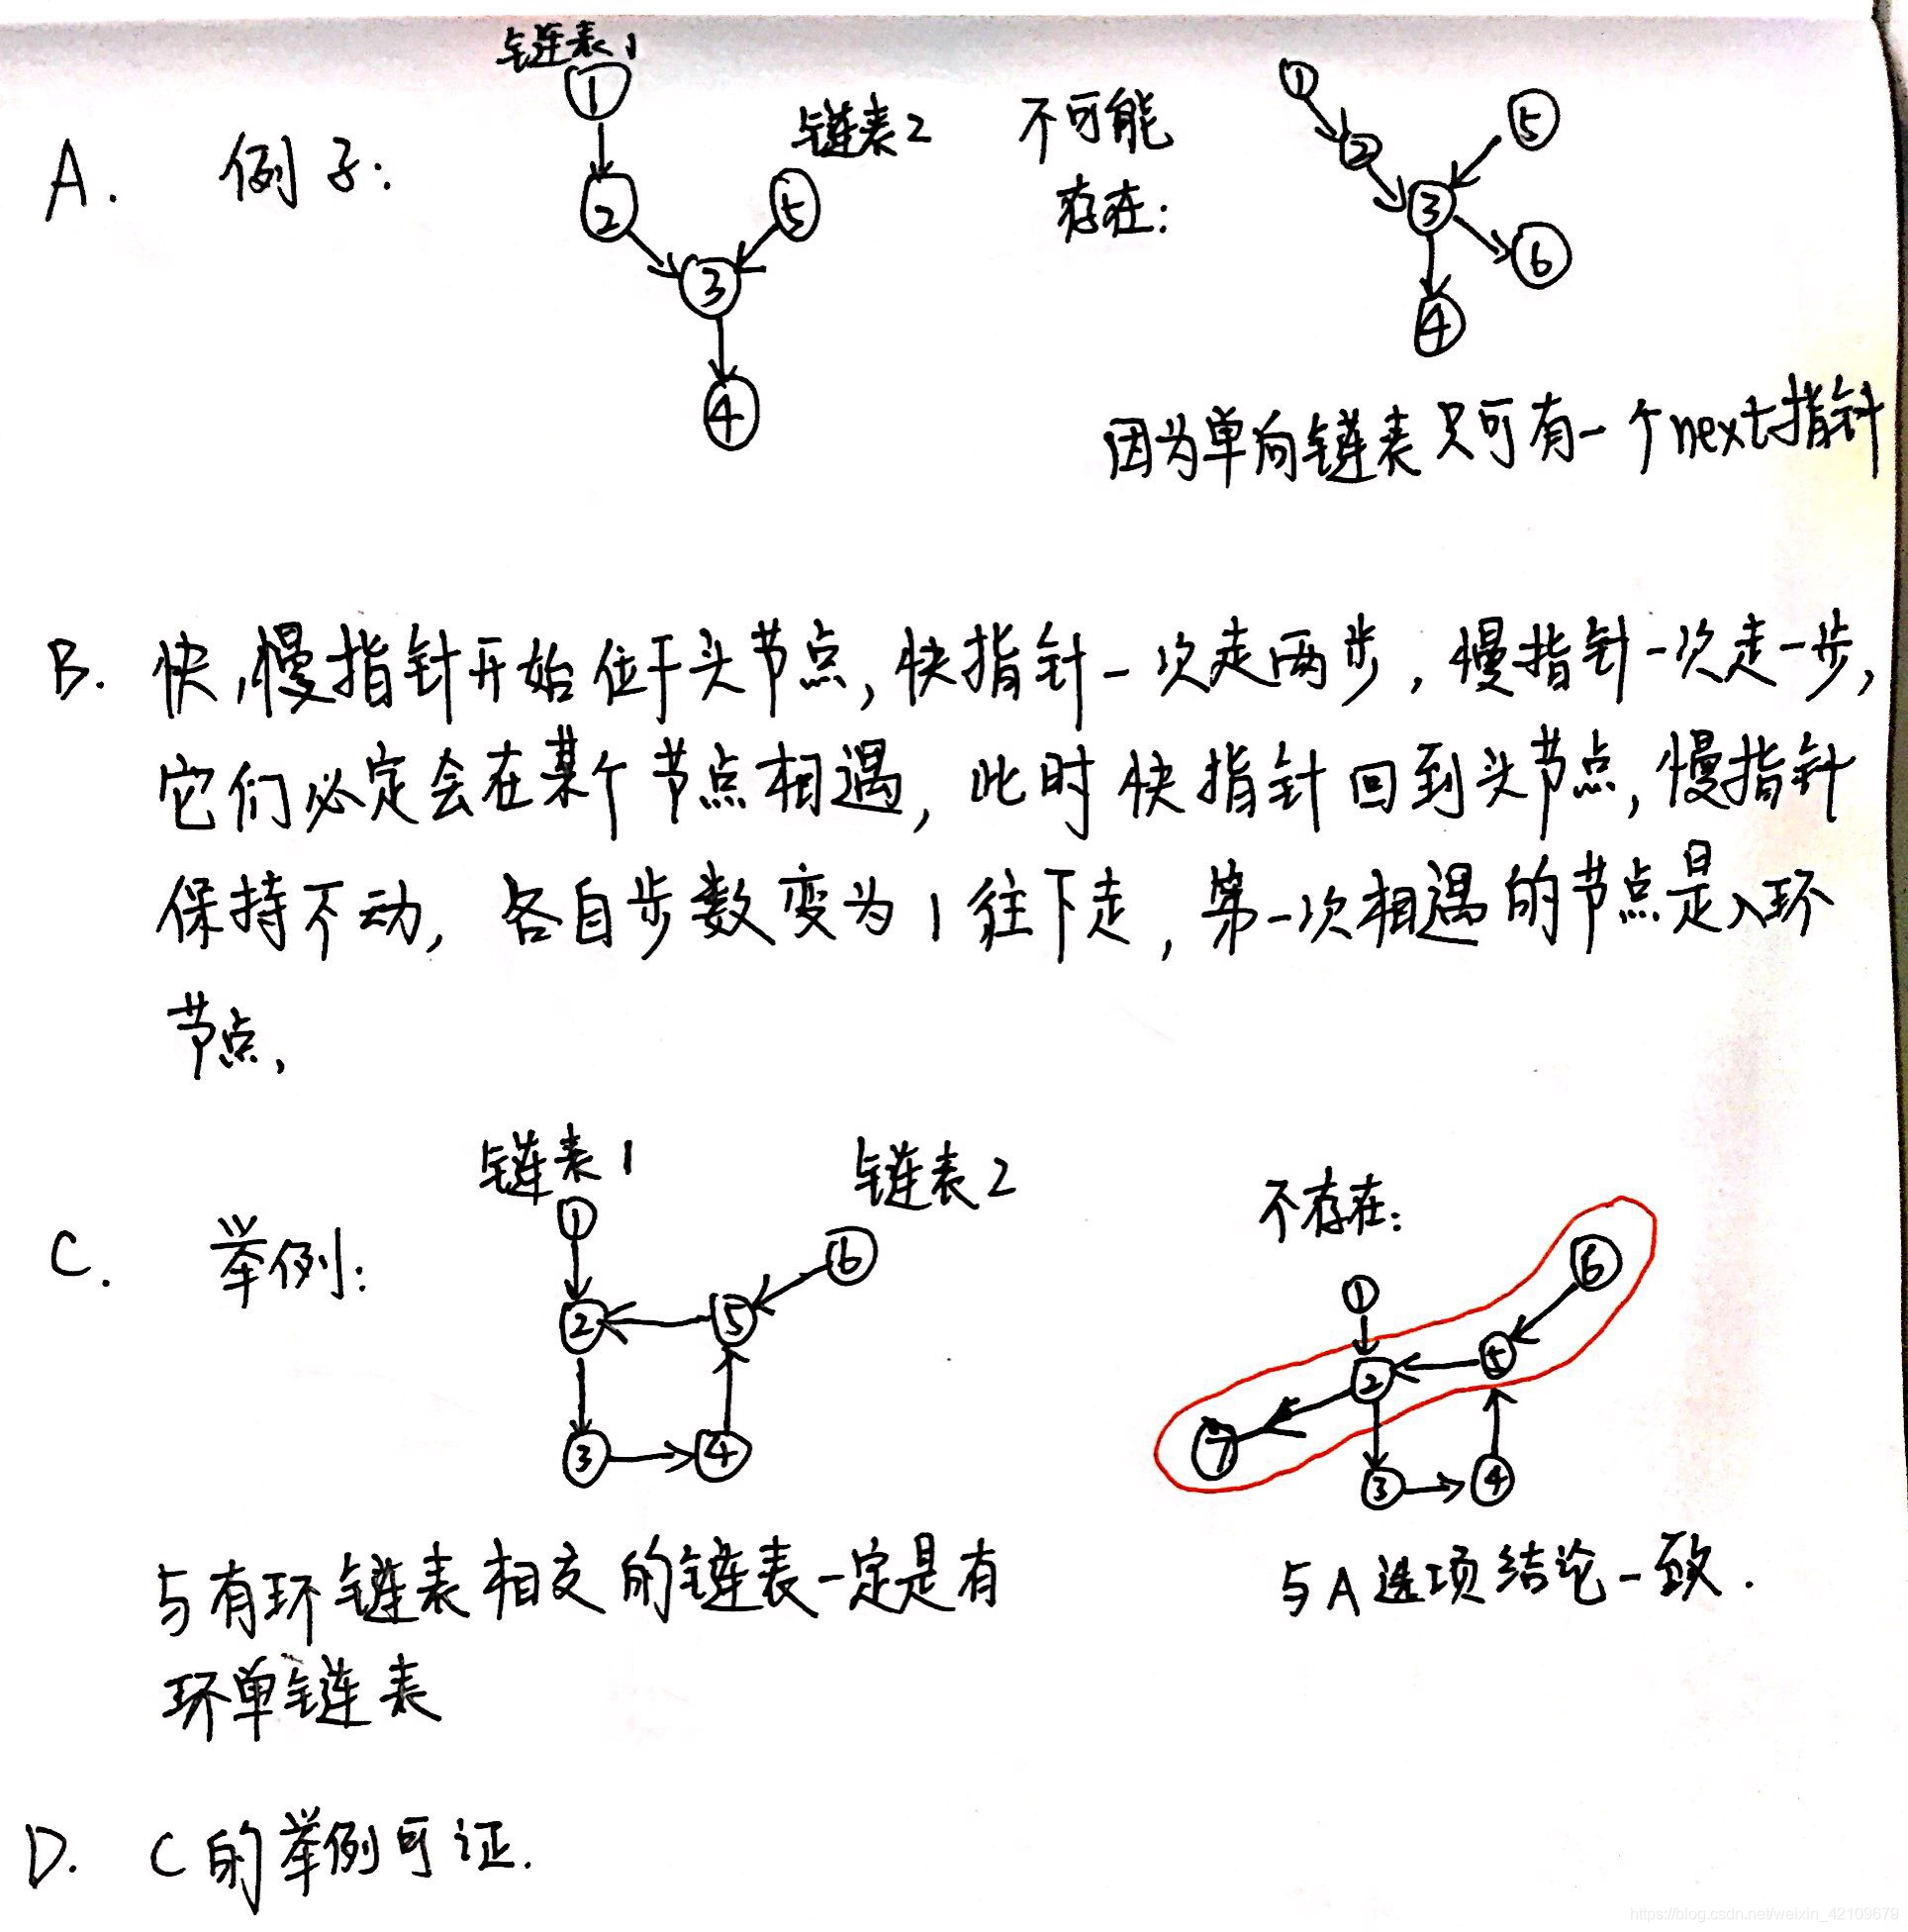 链表1
①
A. 例子:
链表2
②
⑤
③
④
不可能
存在:
①
②
⑤
③
⑥
④
因为单向链表只可有一个next指针
B. 快,慢指针开始位于头节点,快指针一次走两步,慢指针一次走一步,
它们必定会在某个节点相遇,此时快指针回到头节点,慢指针
保持不动,各自步数变为1往下走,第一次相遇的节点是入环
节点,
C. 举例:
链表1
链表2
①
⑥
②
⑤
③
④
不存在:
①
⑥
②
⑤
⑦
③
④
与有环链表相交的链表一定是有
环单链表
与A选项结论一致.
D. C的举例可证.
https://blog.csdn.net/weixin_42109679